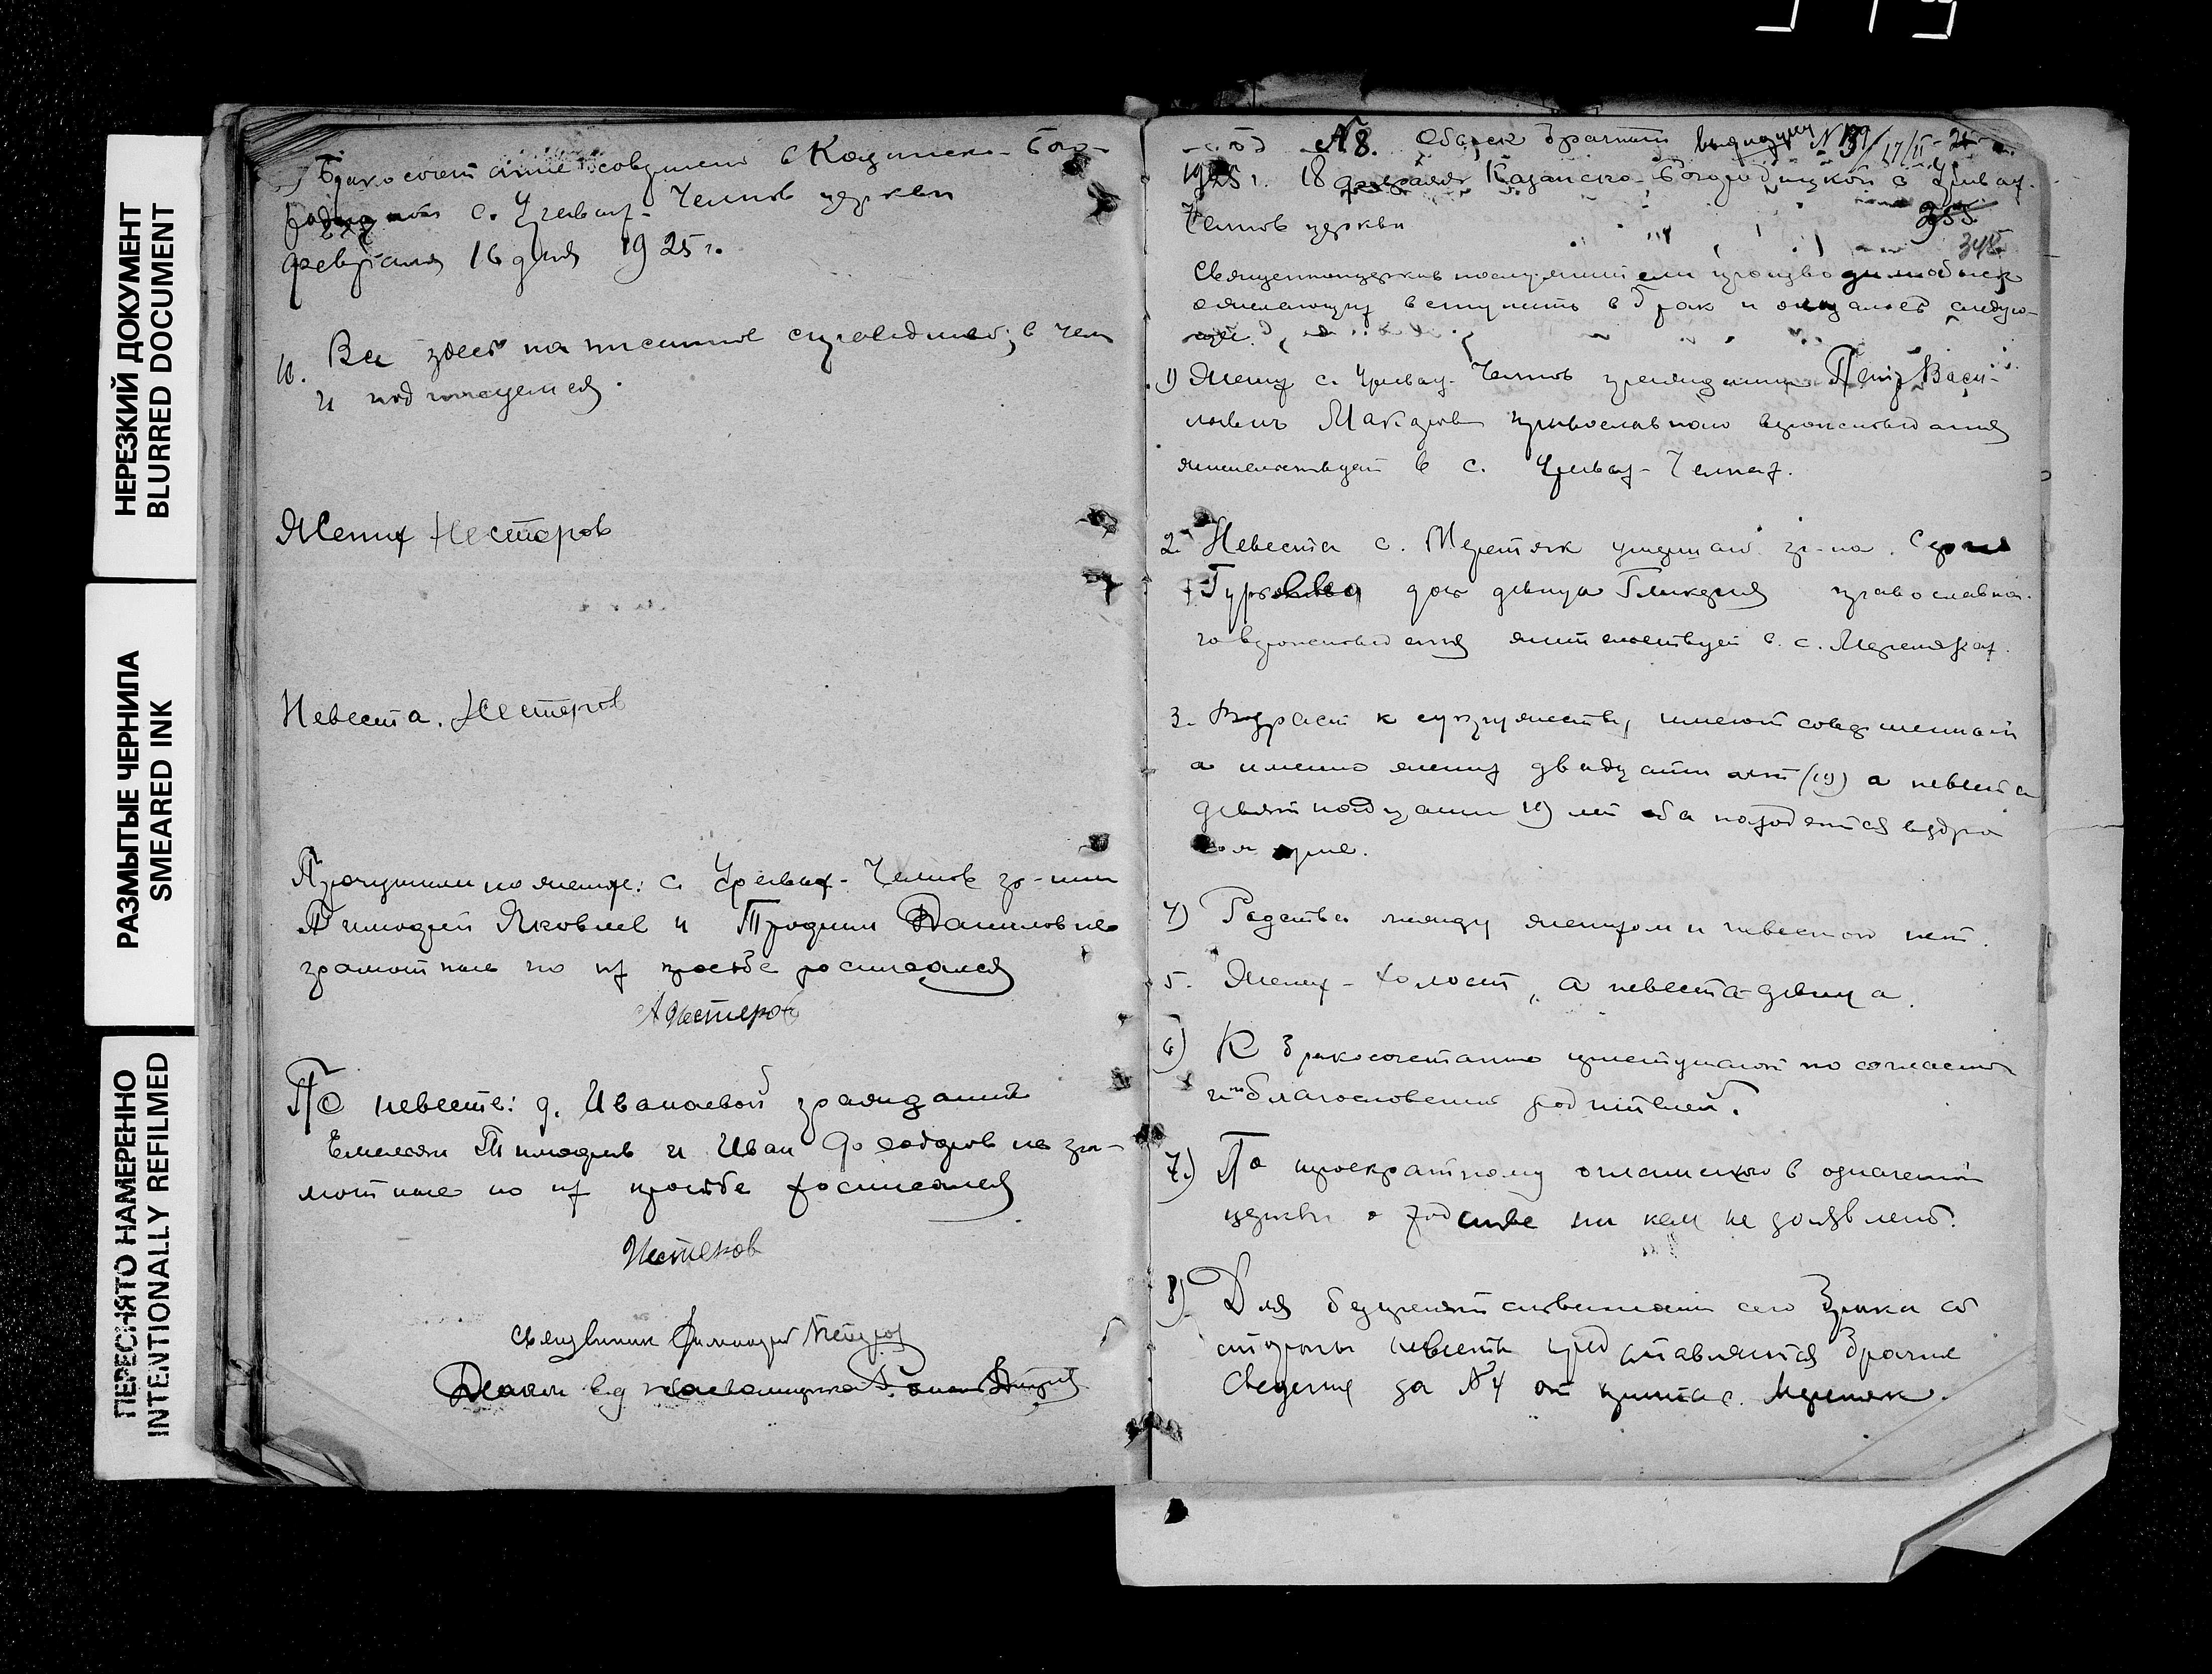 НЕРЕЗКИЙ ДОКУМЕНТ
BLURRED DOCUMENT
РАЗМЫТЫЕ ЧЕРНИЛА
SMEARED INK
ПЕРЕСНЯТО НАМЕРЕННО
INTENTIONALLY REFILMED
Бракосочетание совершено в Казанско-Бого-
с. Челнов церкви
февраля 16 дня 1925 г.
10. Все здесь написанное справедливо, в чем
и подписуемся.
Жених Нестеров
Невеста. Нестеров
Поручители по женихе: с. Челнов гр-не
Тимофей Яковлев и Трофим Данилов не
грамотные по их просьбе росписался
А Нестеров
По невесте: д. Иванаевой граждане
Емельян Тимофеев и Иван Федоров не гра-
мотные по их просьбе росписался
Нестеров
Священник Петров
Диакон
№ 8. Обыск брачный
1925 г. 18 февраля Казанско-Богородицкой с
Челнов церкви
355
348
желающих вступить в брак и оказалось следую-
щее.
1) Жених с. Челнов гражданин Петр Васи-
льевич Макаров православного вероисповедания
жительствует в с. Челнах.
2. Невеста с. Меретяк гр-на
дочь девица Гликерия православно-
го вероисповедания жительствует в с. Меретяках.
3. Возраст к супружеству имеют совершенный
а именно жених двадцати лет а невеста
девятнадцати 19) лет оба находятся в здра-
вом уме.
4) Родства между женихом и невестою нет.
5. Жених - холост, а невеста девица.
6) К бракосочетанию приступают по согласию
и по благословению родителей.
7.) По троекратному оглашению в означенной
церкви о родстве ни кем не заявлено.
8) Для безпрепятственности сего брака со
стороны невесты представляются брачные
сведения за № 4 от причта с. Меретяк.